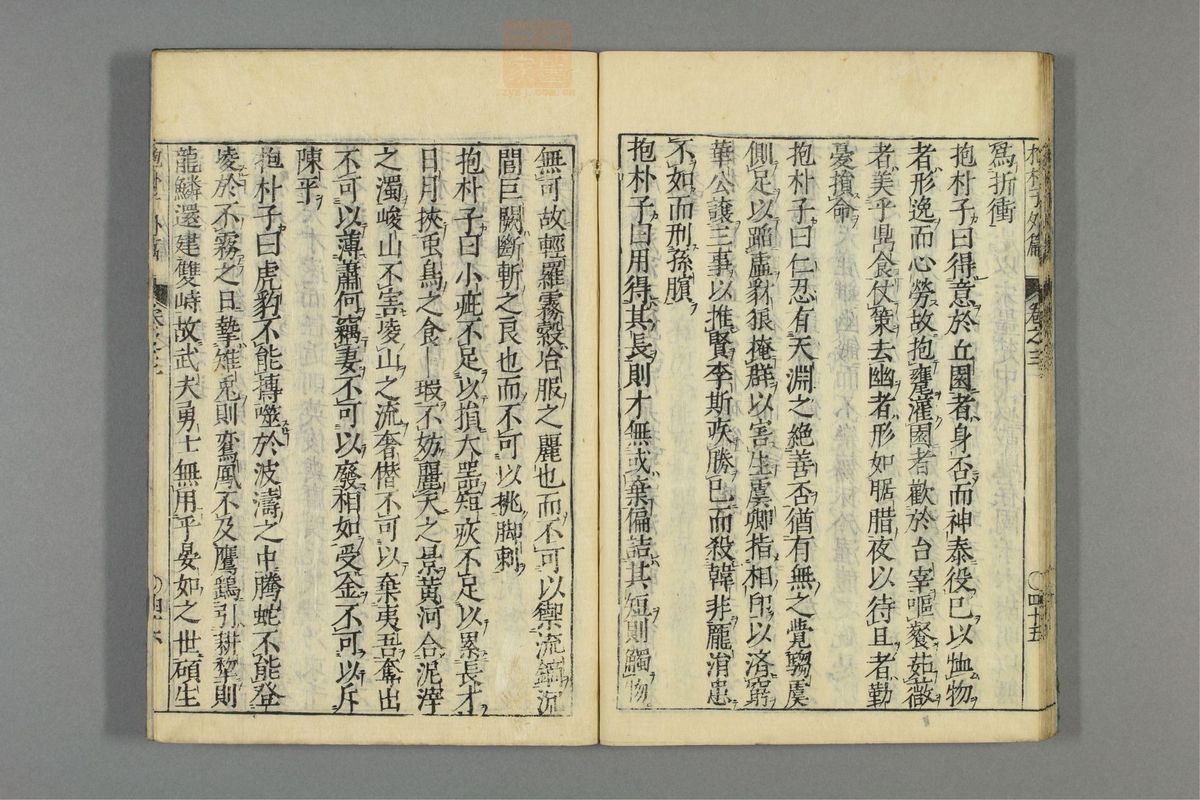 抱朴子外篇 卷之三 四十五
為折衝
抱朴子曰得意於丘園者身否而神泰役己以恤物
者形逸而心勞故抱甕灌園者歡於台宰嘔餐茹薇
者美乎鼎食仗策去豳者形如腒腊夜以待旦者勤
憂損命
抱朴子曰仁忍有天淵之絶善否猶有無之覺騶虞
側足以蹈虛豺狼掩群以害生虞卿指相印以濟窮
華公讓三事以推賢李斯疾勝己而殺韓非龐涓患
不如而刑孫臏
抱朴子曰用得其長則才無或棄偏詰其短則觸物
無可故輕羅霧縠冶服之麗也而不可以禦流鏑沉
閭巨闕斷斬之良也而不可以挑脚刺
抱朴子曰小疵不足以損大噐短疢不足以累長才
日月挾䖘鳥之食――瑕不妨麗天之景黃河合泥滓
之濁峻山不害凌山之流奢僭不可以棄夷吾奪出
不可以薄蕭何竊妻不可以廢相如受金不可以斥
陳平
抱朴子曰虎豹不能搏噬於波濤之中騰蛇不能登
凌於不霧之日摯雉兎則鸞鳳不及鷹鷂引耕犂則
龍鱗還建雙峙故武夫勇士無用乎晏如之世碩生
抱朴子外篇 卷之三 四十六